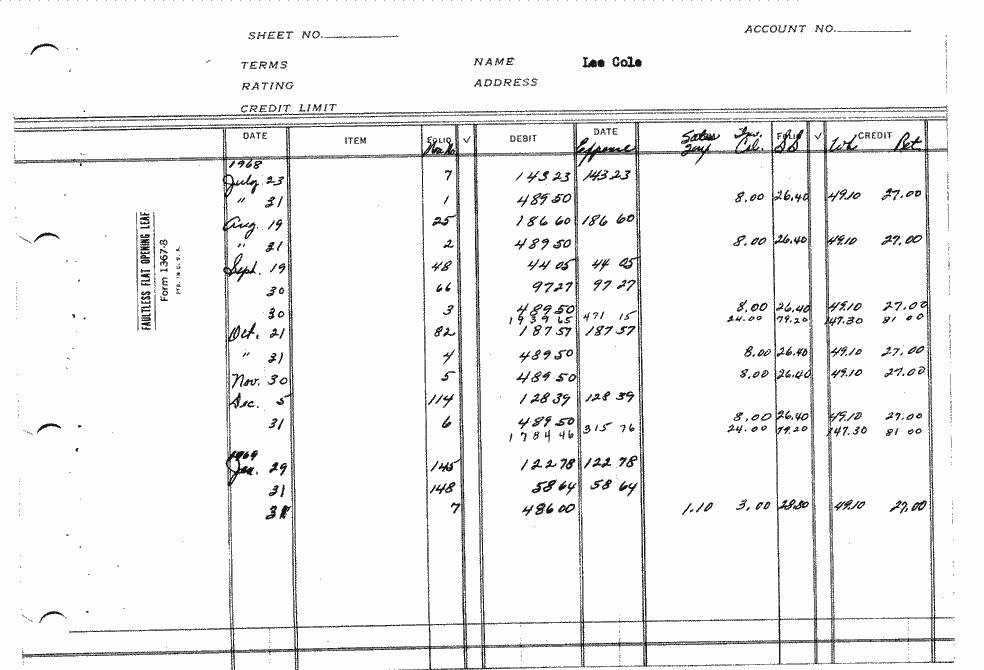 SHEET NO.
ACCOUNT NO.
TERMS NAME Lee Cole
RATING ADDRESS
CREDIT LIMIT
DATE ITEM FOLIO √ DEBIT DATE Expense Sales FOLIO √ CREDIT Wh Ret.
1968
July 23 7 143 23 143 23
" 31 1 489 50 8.00 26.40 49.10 27.00
Aug. 19 25 186 60 186 60
" 31 2 489 50 8.00 26.40 49.10 27.00
Sept. 19 48 44 05 44 05
30 66 97 27 97 27
30 3 489 50 8.00 26.40 49.10 27.00
1939 65 471 15 24.00 79.20 147.30 81 00
Oct. 21 82 187 57 187 57
" 31 4 489 50 8.00 26.40 49.10 27.00
Nov. 30 5 489 50 8.00 26.40 49.10 27.00
Dec. 5 114 128 39 128 39
31 6 489 50 8.00 26.40 49.10 27.00
1784 46 315 76 24.00 79.20 147.30 81 00
1969
Jan. 29 145 122 78 122 78
31 148 58 64 58 64
31 7 486 00 1.10 3.00 49.10 27.00
FAULTLESS FLAT OPENING LEAF
Form 1367-8
PTD. IN U.S.A.